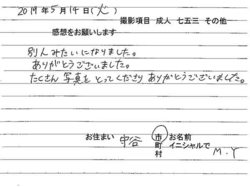 2019年5月14日(火)
撮影項目 成人 七五三 その他
感想をお願いします
別人みたいになりました。
ありがとうございました。
たくさん写真をとってくださりありがとうございました。
お住まい 守谷 市町村 お名前イニシャルで M.Y